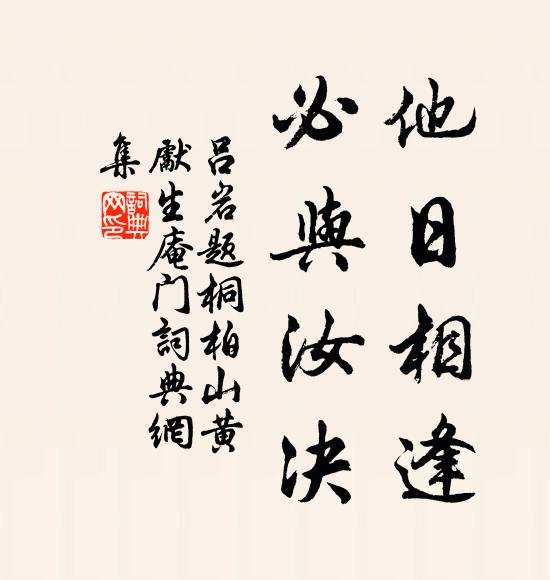 他日相逢
必與汝決
吕岩题桐柏山黄
獻生庵门詞典網
集
詞典網印